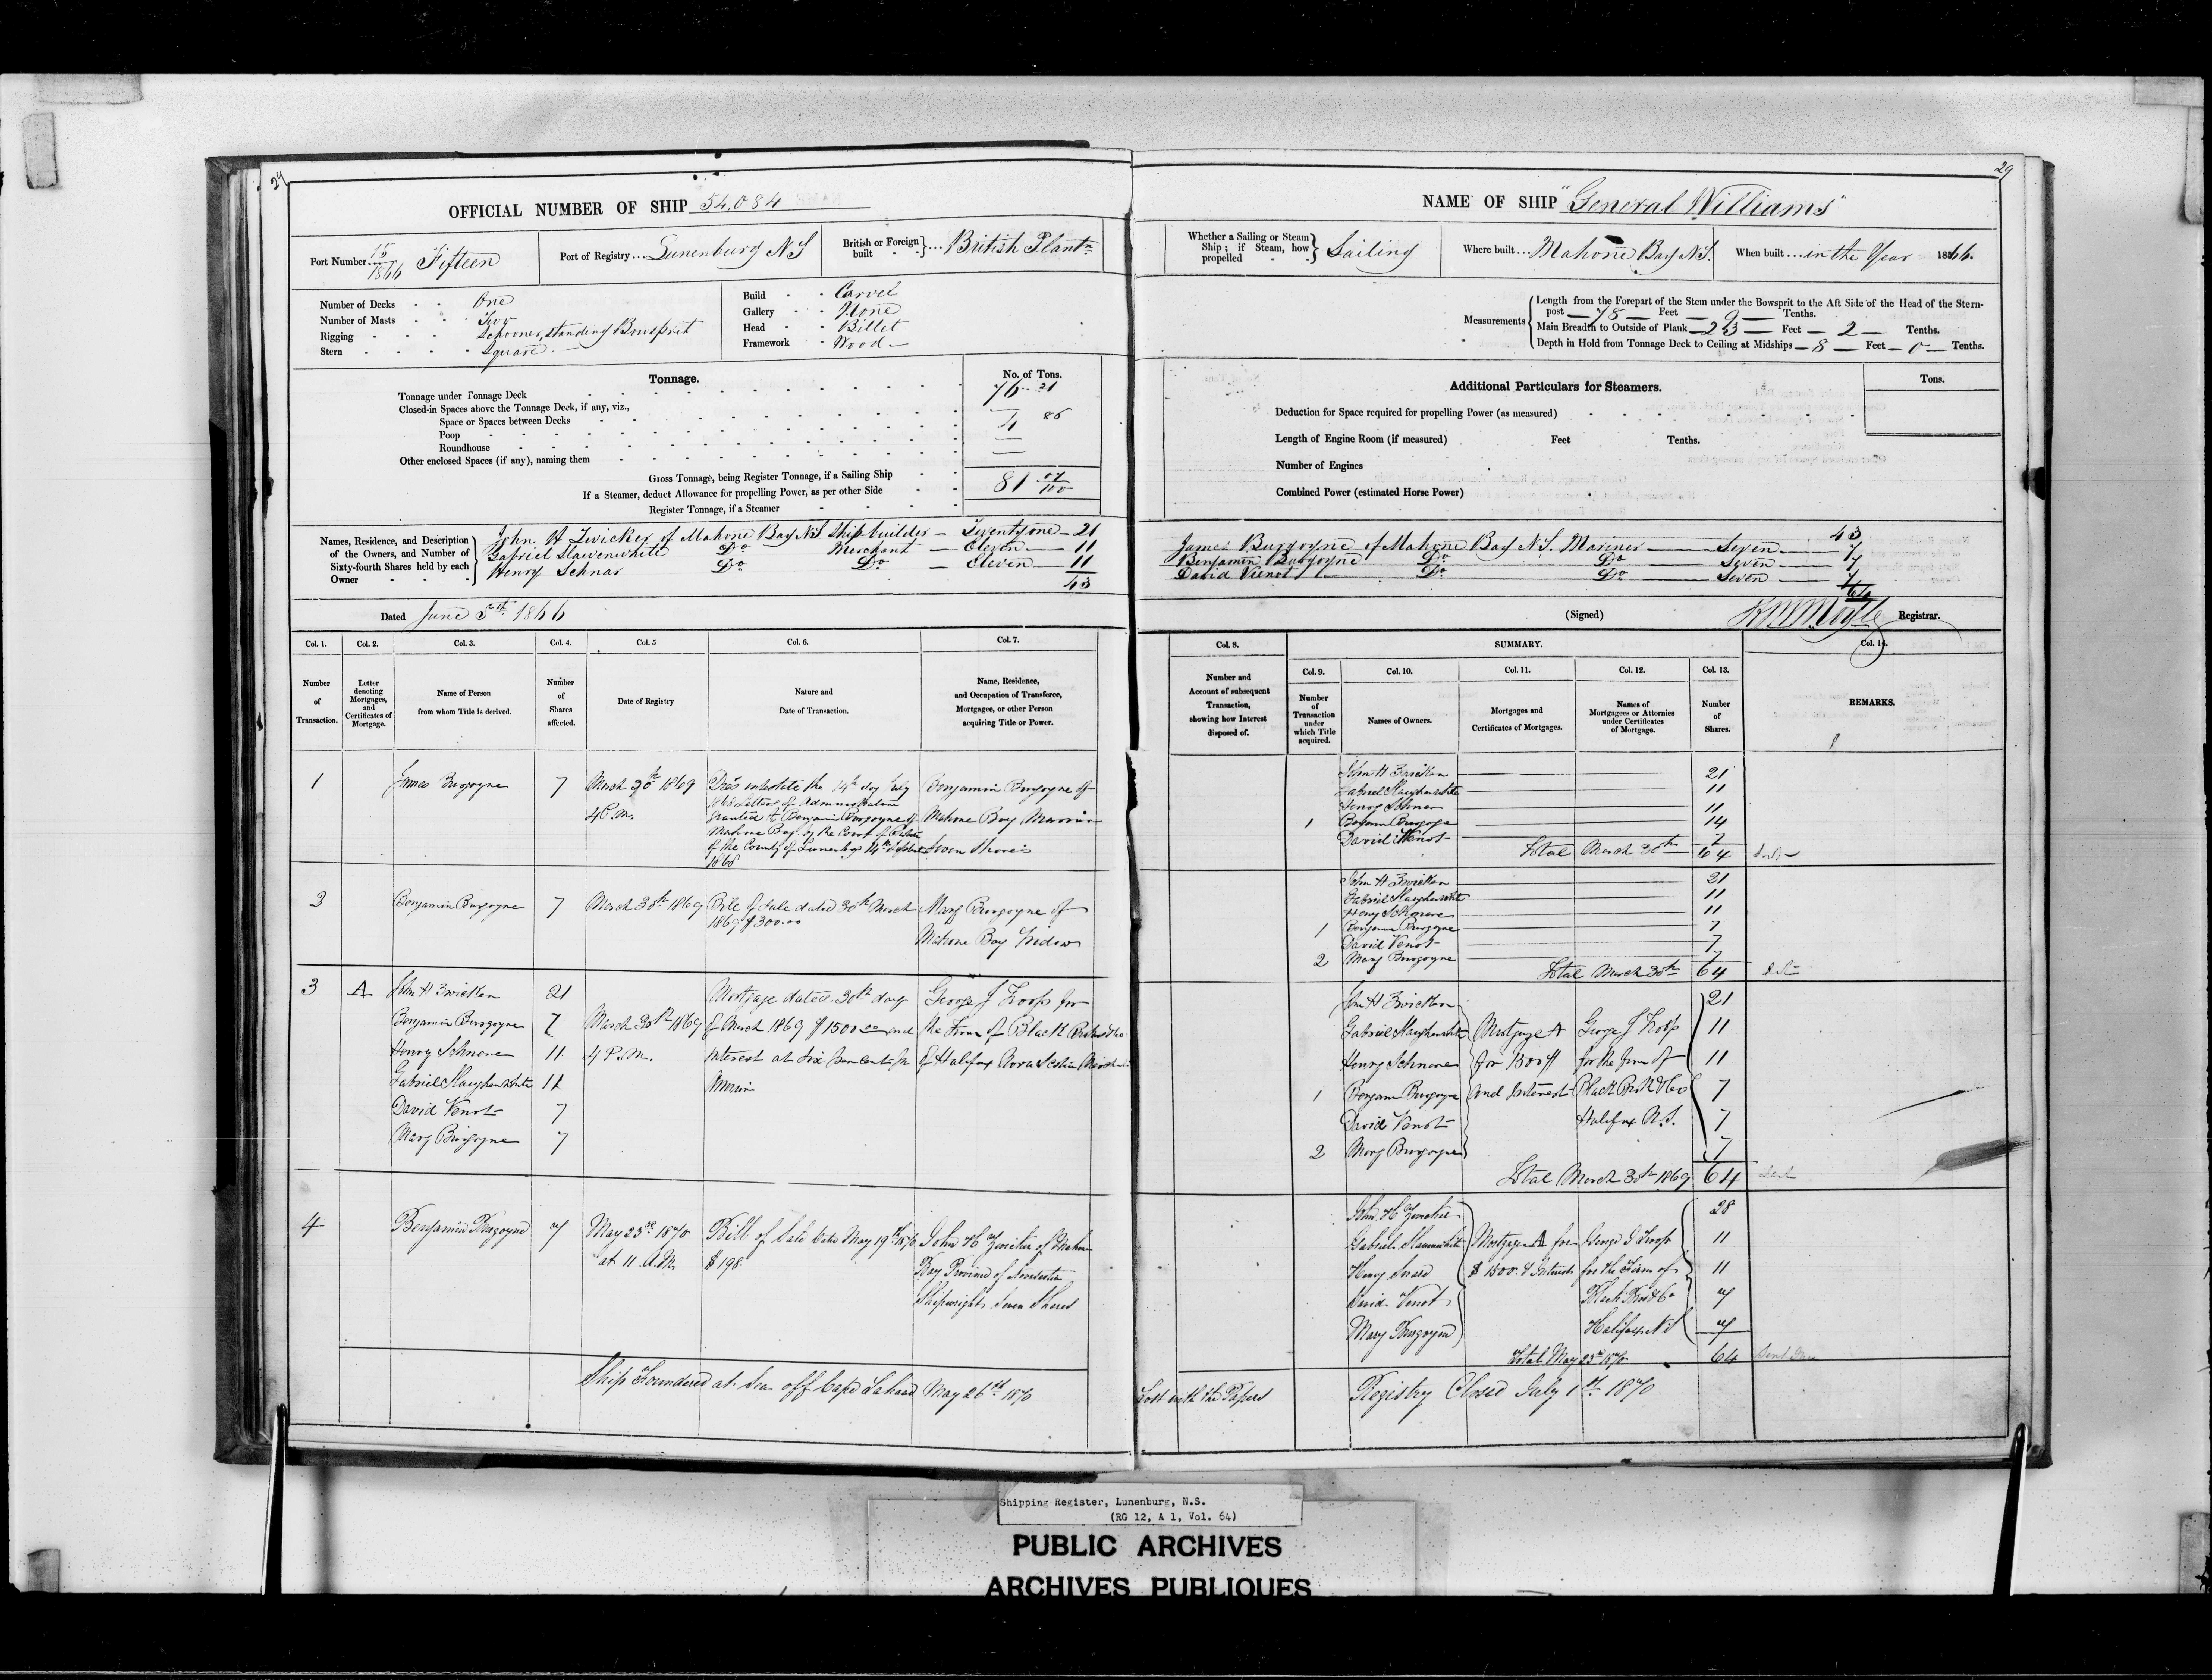 29
OFFICIAL NUMBER OF SHIP 54,084
Port Number 15/1866 Fifteen
Port of Registry Lunenburg N S
British or Foreign built British Plantn
Number of Decks One
Number of Masts Two
Rigging Schooner, standing Bowsprit
Stern Square
Build Carvel
Gallery None
Head Billet
Framework Wood
Tonnage.
No. of Tons.
Tonnage under Tonnage Deck 76 21
Closed-in Spaces above the Tonnage Deck, if any, viz.,
Space or Spaces between Decks
Poop 4 86
Roundhouse
Other enclosed Spaces (if any), naming them
Gross Tonnage, being Register Tonnage, if a Sailing Ship 81 07/100
If a Steamer, deduct Allowance for propelling Power, as per other Side
Register Tonnage, if a Steamer
Names, Residence, and Description of the Owners, and Number of Sixty-fourth Shares held by each Owner
John H Zwicker of Mahone Bay N S Ship-builder — Twenty one — 21
Gabriel Slawenwhite Do Merchant — Eleven — 11
Henry Schnar Do Do — Eleven — 11
43
Dated June 5th 1866
Col. 1. Col. 2. Col. 3. Col. 4. Col. 5 Col. 6. Col. 7.
Number of Transaction.
Letter denoting Mortgages, and Certificates of Mortgage.
Name of Person from whom Title is derived.
Number of Shares affected.
Date of Registry
Nature and Date of Transaction.
Name, Residence, and Occupation of Transferee, Mortgagee, or other Person acquiring Title or Power.
1 James Burgoyne 7 March 30th 1869
4 P.m.
Dies intestate the 14th day July
Letters of Administration
granted to Benjamin Burgoyne of
Mahone Bay by the Court of Probate
of the County of Lunenburg 14th
1868
Benjamin Burgoyne of
Mahone Bay Mariner
Seven Shares
2 Benjamin Burgoyne 7 March 30th 1869
Bill of Sale dated 30th March
1869 $300.00
Mary Burgoyne of
Mahone Bay Widow
3 A John H Zwicker 21
Benjamin Burgoyne 7
Henry Schnare 11
Gabriel Slaughenwhite 11
David Venot 7
Mary Burgoyne 7
March 30th 1869
4 P.M.
Mortgage dated 30th day
of March 1869 $1500.00 and
Interest at Six per cent per
George J Troop for
the Firm of Black
of Halifax Nova Scotia
4 Benjamin Burgoyne 7 May 23rd 1870
at 11 A.M.
Bill of Sale dated May 19th 1870
$198
John H Zwicker of Mahone
Bay Province of Novascotia
Shipwright Seven Shares
Ship Foundered at Sea off Cape Lahave May 26th 1870
29
NAME OF SHIP "General Williams"
Whether a Sailing or Steam Ship; if Steam, how propelled Sailing
Where built Mahone Bay N S.
When built in the Year 1866.
Measurements
Length from the Forepart of the Stem under the Bowsprit to the Aft Side of the Head of the Stern-
post — 78 — Feet — 9 — Tenths.
Main Breadth to Outside of Plank — 23 — Feet — 2 — Tenths.
Depth in Hold from Tonnage Deck to Ceiling at Midships — 8 — Feet — 0 — Tenths.
Additional Particulars for Steamers.
Tons.
Deduction for Space required for propelling Power (as measured)
Length of Engine Room (if measured) Feet Tenths.
Number of Engines
Combined Power (estimated Horse Power)
43
James Burgoyne of Mahone Bay N S. Mariner — Seven — 7
Benjamin Burgoyne Do Do — Seven — 7
David Vienot Do Do — Seven — 7
64
(Signed) Registrar.
Col. 8. SUMMARY. Col. 14.
Number and Account of subsequent Transaction, showing how Interest disposed of.
Col. 9. Col. 10. Col. 11. Col. 12. Col. 13.
Number of Transaction under which Title acquired.
Names of Owners.
Mortgages and Certificates of Mortgages.
Names of Mortgagees or Attornies under Certificates of Mortgage.
Number of Shares.
REMARKS.
John H Zwicker 21
Gabriel Slaughenwhite 11
Henry Schnare 11
1 Benjamin Burgoyne 14
David Venot 7
Total March 30th 64
John H Zwicker 21
Gabriel Slaughenwhite 11
Henry Schnare 11
1 Benjamin Burgoyne 7
David Venot 7
2 Mary Burgoyne 7
Total March 30th 64
John H Zwicker 21
Gabriel Slaughenwhite 11
Henry Schnare 11
1 Benjamin Burgoyne 7
David Venot 7
2 Mary Burgoyne 7
Mortgage A
for 1500$
and Interest
George J Troop
for the firm of
Black Bros & Co
Halifax N.S.
Total March 30th 1869 64
John H Zwicker 28
Gabriel Slawenwhite 11
Henry Snare 11
David Venot 7
Mary Burgoyne 7
Mortgage A for
$1500 & Interest
George J Troop
for the Firm of
Black Bros & Co
Halifax N S
Total May 23rd 1870 64
Lost with the Papers
Registry Closed July 1st 1870
Shipping Register, Lunenburg, N.S.
(RG 12, A 1, Vol. 64)
PUBLIC ARCHIVES
ARCHIVES PUBLIQUES